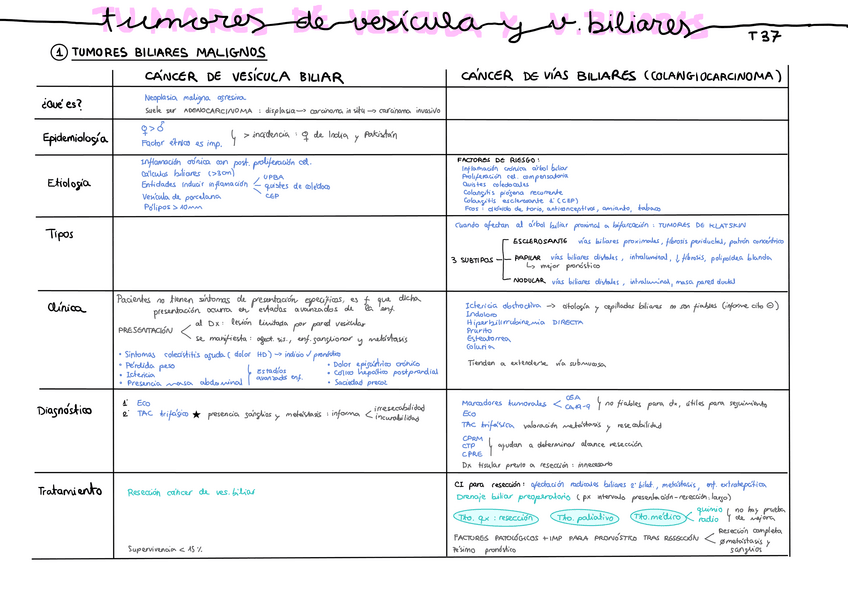 tumores de vesícula y v. biliares
T37
① TUMORES BILIARES MALIGNOS
CÁNCER DE VESÍCULA BILIAR
CÁNCER DE VÍAS BILIARES (COLANGIOCARCINOMA)
¿Qué es?
Neoplasia maligna agresiva
Suele ser ADENOCARCINOMA : displasia → carcinoma in situ → carcinoma invasivo
Epidemiología
♀ > ♂
Factor étnico es imp.
> incidencia : ♀ de India y Pakistán
Etiología
Inflamación crónica con post. proliferación cel.
Cálculos biliares (>3cm)
Entidades inducir inflamación
UPBA
quistes de colédoco
CEP
Vesícula de porcelana
Pólipos > 10mm
FACTORES DE RIESGO:
Inflamación crónica árbol biliar
Proliferación cel. compensatoria
Quistes coledocales
Colangitis piógena recurrente
Colangitis esclerosante 1ª (CEP)
Fcos : dióxido de torio, anticonceptivos, amianto, tabaco
Tipos
Cuando afectan al árbol biliar proximal a bifurcación : TUMORES DE KLATSKIN
3 SUBTIPOS
ESCLEROSANTE vías biliares proximales, fibrosis periductal, patrón concéntrico
PAPILAR vías biliares distales, intraluminal, ↓ fibrosis, polipoidea blanda
↳ mejor pronóstico
NODULAR vías biliares distales, intraluminal, masa pared ductal
Clínica
Pacientes no tienen síntomas de presentación específicos, es f que dicha
presentación ocurra en estados avanzados de la enf.
PRESENTACIÓN
al Dx : lesión limitada por pared vesicular
se manifiesta : afect. sis., enf. ganglionar y metástasis
• Síntomas colecistitis aguda ( dolor HD) → indicio ✓ pronóstico
• Pérdida peso
• Ictericia
• Presencia masa abdominal
estadíos
avanzados enf.
• Dolor epigástrico crónico
• Cólico hepático postprandial
• Saciedad precoz
Ictericia obstructiva → citología y cepillados biliares no son fiables (informe cito ⊖)
Indoloro
Hiperbilirrubinemia DIRECTA
Prurito
Esteatorrea
Coluria
Tienden a extenderse vía submucosa
Diagnóstico
1º Eco
2º TAC trifásico ★ presencia ganglios y metástasis : informa
irresecabilidad
incurabilidad
Marcadores tumorales
CEA
CA19-9
no fiables para dx, útiles para seguimiento
Eco
TAC trifásica valoración metástasis y resecabilidad
CPRM
CTP
CPRE
ayudan a determinar alcance resección
Dx tisular previo a resección : innecesario
Tratamiento
Resección cáncer de ves. biliar
Supervivencia < 15 %
CI para resección : afectación radicales biliares 2º bilat., metástasis, enf. extrahepática
Drenaje biliar preoperatorio ( px intervalo presentación-resección largo)
Tto. qx : resección
Tto. paliativo
Tto. médico
quimio
radio
no hay prueba
de mejora
FACTORES PATOLÓGICOS + IMP PARA PRONÓSTICO TRAS RESECCIÓN
Resección completa
Ø metástasis y
ganglios
Pésimo pronóstico